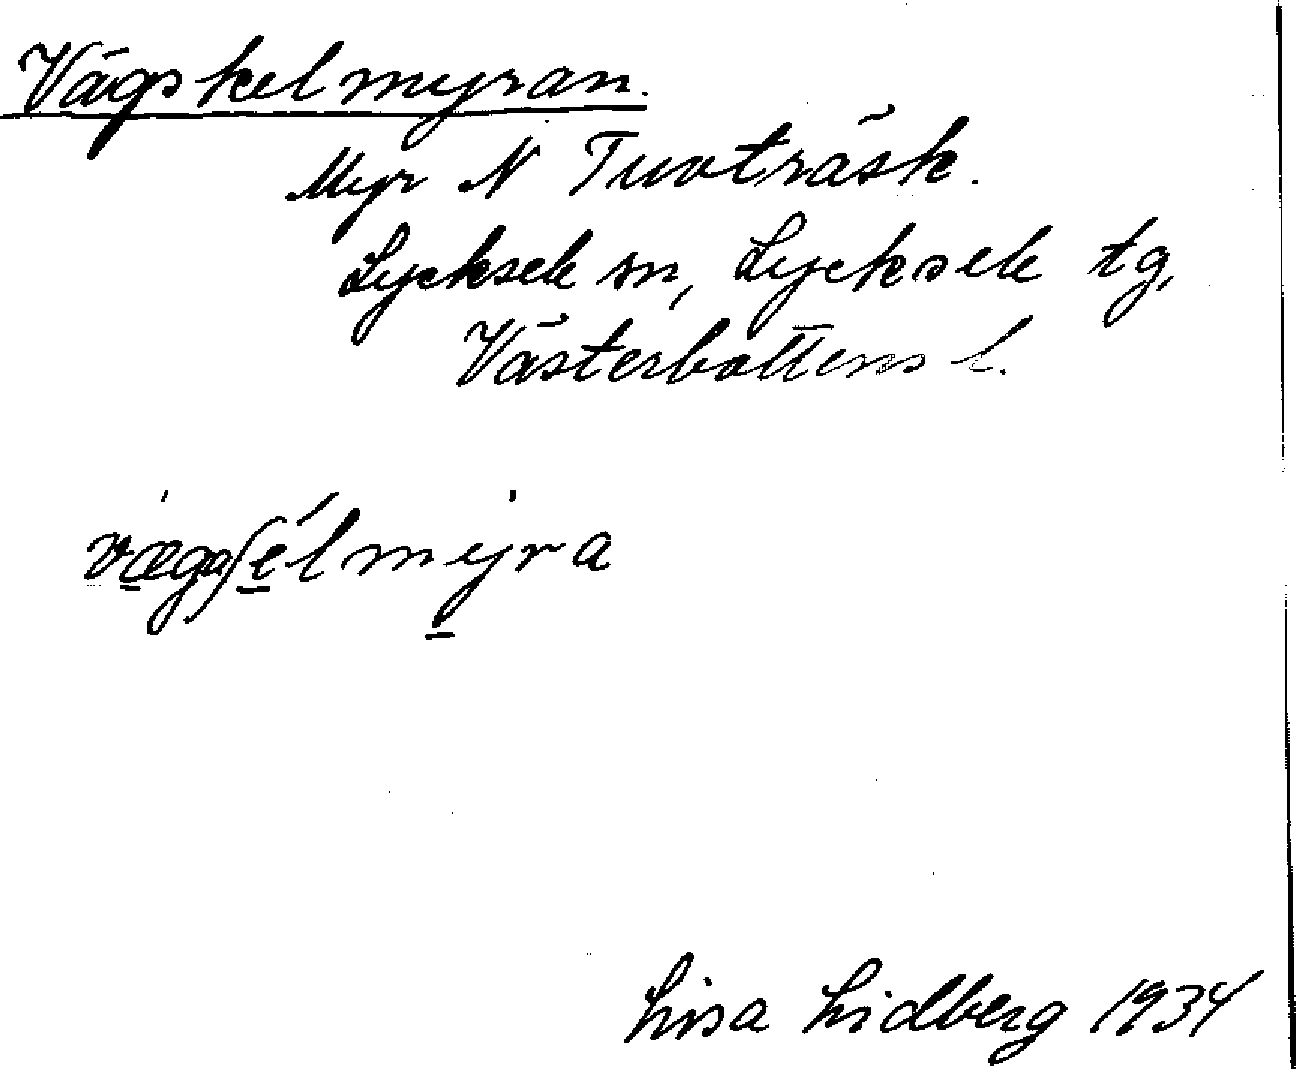 Vägskelmyran.
Myr N Tuvträsk.
Lycksele sn, Lycksele tg,
Västerbottens l.
vægsʃelmyra
Lisa Lidberg 1934